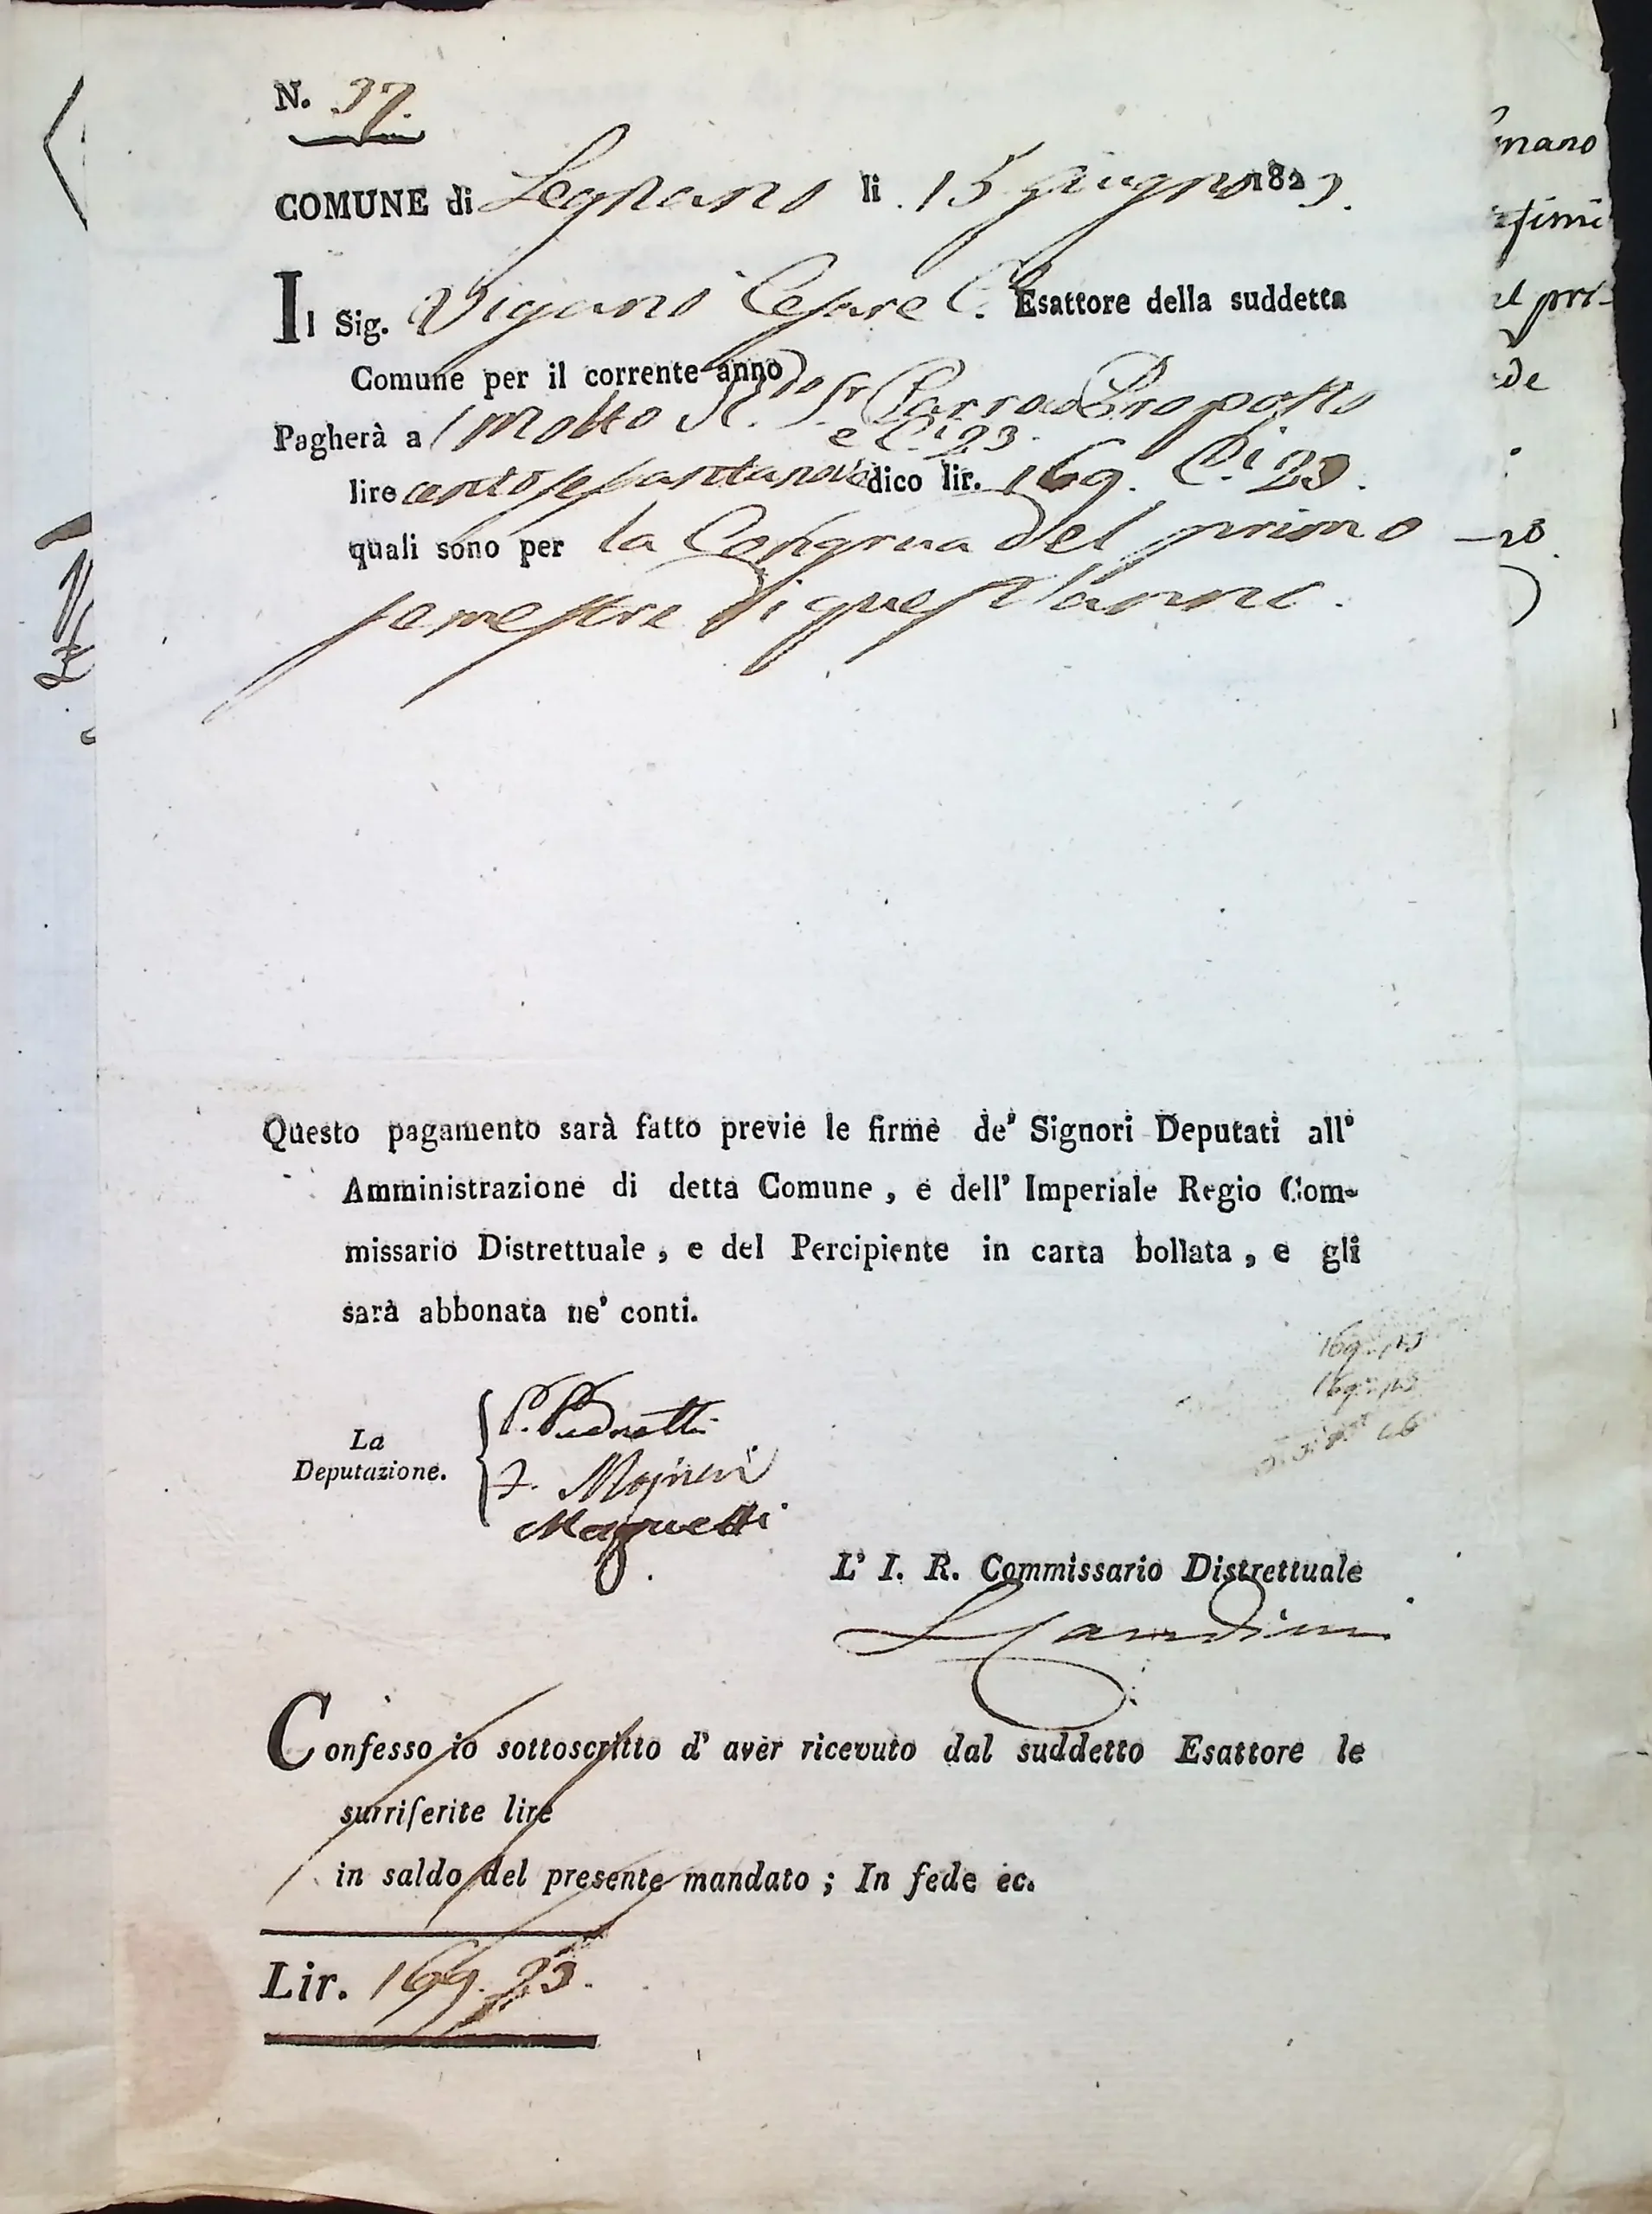 N. 37.
COMUNE di Legnano li 15 giugno 1823.
Il Sig. Viganò Cesare C. Esattore della suddetta
Comune per il corrente anno
Pagherà a l Molto R.do Sr Parroco Proposto
e C.i 23.
lire centosessantanove dico lir. 169. C.i 23.
quali sono per la Congrua del primo
semestre di quest'anno.
Questo pagamento sarà fatto previe le firme de' Signori Deputati all'
Amministrazione di detta Comune, e dell' Imperiale Regio Com-
missario Distrettuale, e del Percipiente in carta bollata, e gli
sarà abbonata ne' conti.
La
Deputazione.
Magnetti
L' I. R. Commissario Distrettuale
Confesso io sottoscritto d' aver ricevuto dal suddetto Esattore le
surriferite lire
in saldo del presente mandato; In fede ec.
Lir. 169.23.
mano
de